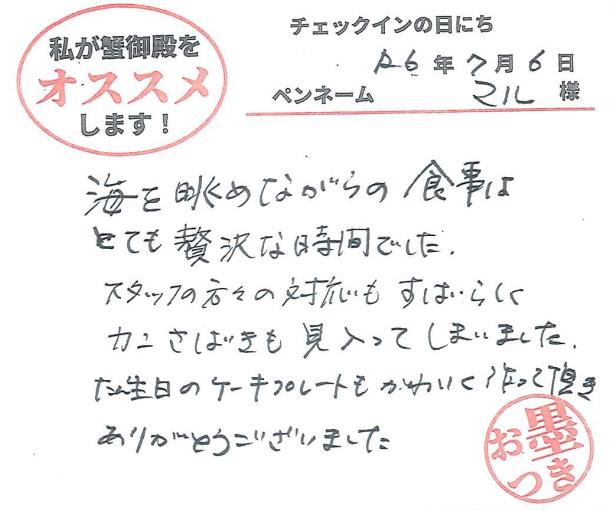 私が蟹御殿を
オススメ
します！
チェックインの日にち
R6年7月6日
ペンネーム マル 様
海を眺めながらの食事は
とても贅沢な時間でした.
スタッフの方々の対応もすばらしく
カニさばきも見入ってしまいました.
お誕生日のケーキプレートもかわいく作って頂き
ありがとうございました
お墨つき